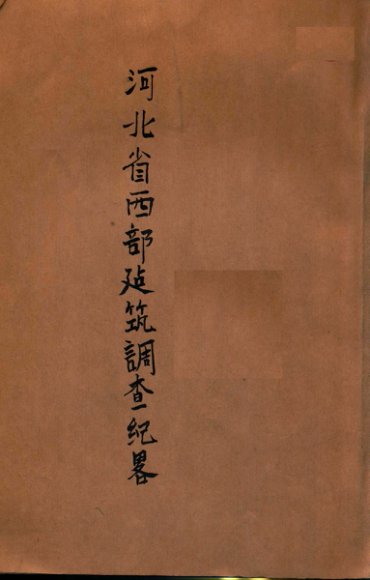 河北省西部建筑調查紀畧